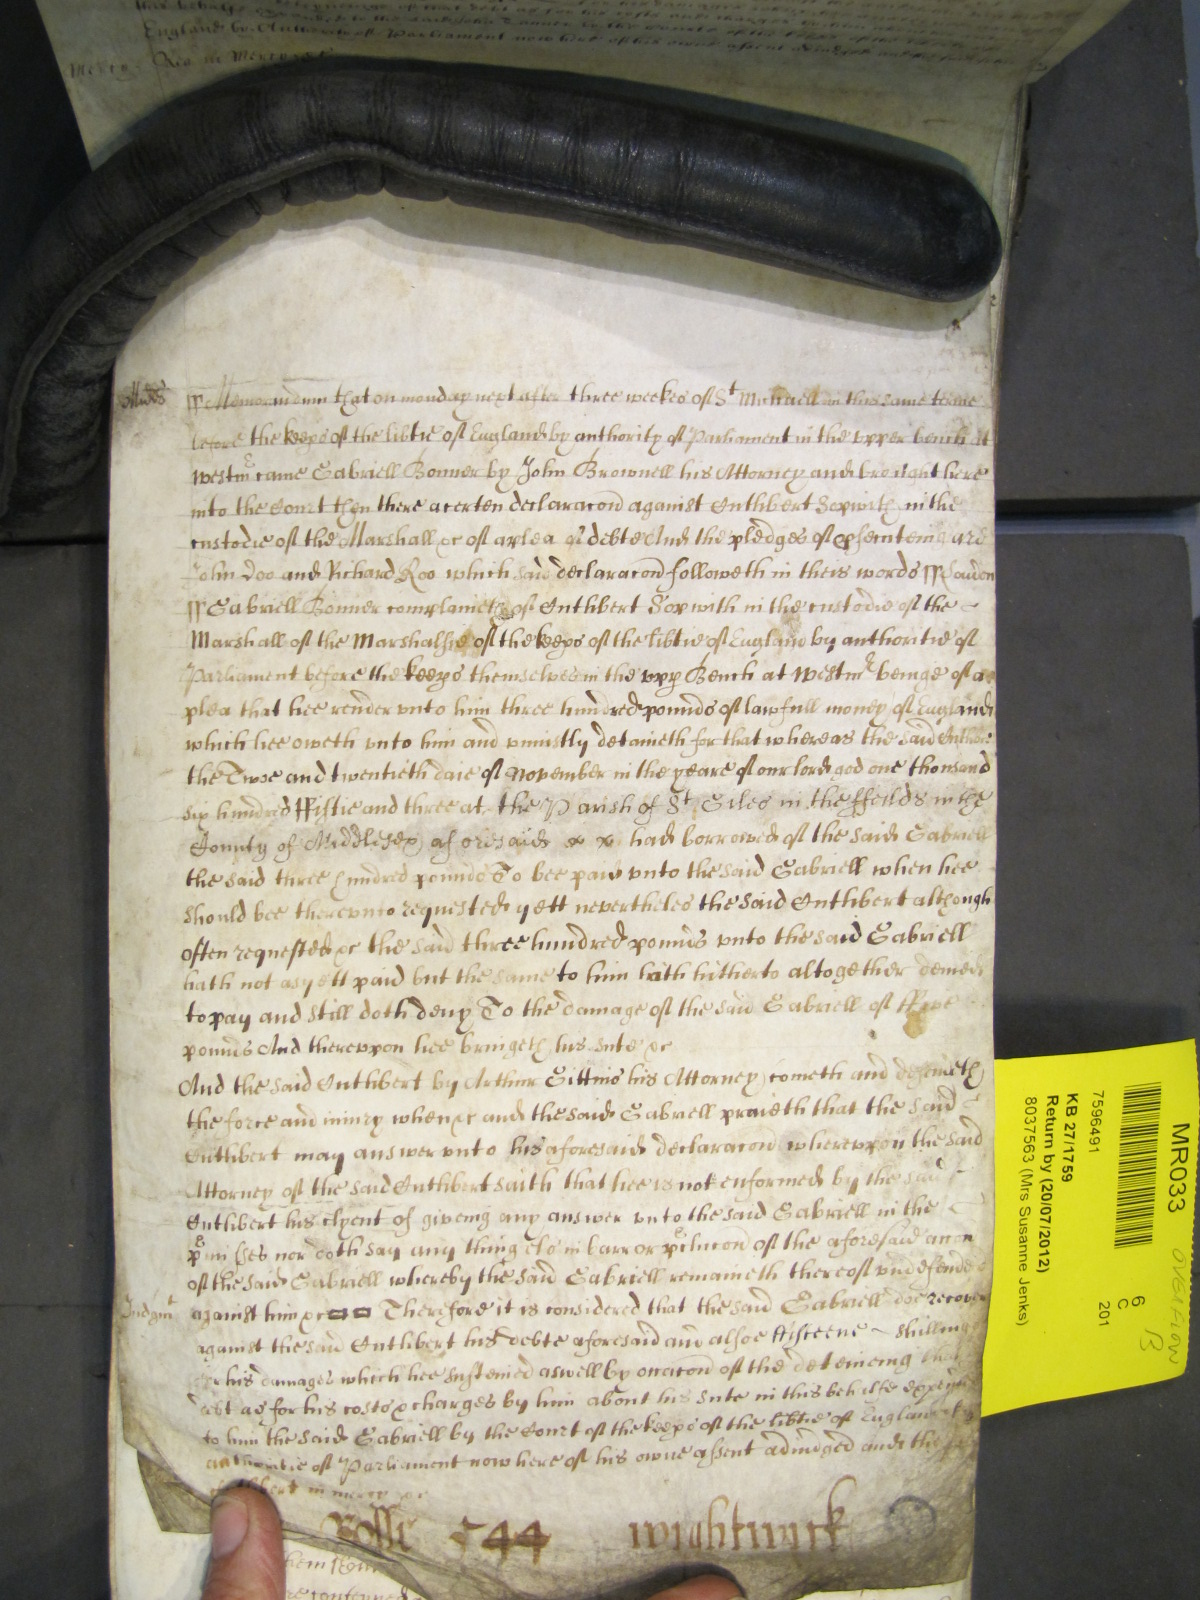 England by Authority of Parliament now here of his owne assent adiudged and the said
Mercy
Midds
ss Memorandum that on monday next after three weekes of St Michaell in this same terme
before the keeps of the libtie of England by authority of Parliament in the vpper bench at
westmr came Gabriell Bonner by John Brownell his Attorney and brought here
into the Court then there a certen declaracon against Cuthbert Sopwith in the
custodie of the Marshall &c of a plea of debte And the pledges of psecuteing are
John Doo and Richard Roo which said declaracon followeth in theis words ss
ss Gabriell Bonner complaineth of Cuthbert Sopwith in the custodie of the
Marshall of the Marshalsie of the keeps of the libtie of England by authoritie of
Parliament before the keeps themselves in the vpp Bench at westmr beinge of a
plea that hee render vnto him three hundred pounds of lawfull money of England
which hee oweth vnto him and vniustly detaineth for that whereas the said Cuthbert
the Twoe and twentieth daie of November in the yeare of our lord god one thousand
six hundred ffiftie and three at the Parish of St Giles in the ffeilds in the
County of Middlesex aforesaid x x had borrowed of the said Gabriell
the said three hundred pounds To bee paid vnto the said Gabriell when hee
should bee therevnto requested yett nevertheles the said Cuthbert although
often requested &c the said three hundred pounds vnto the said Gabriell
hath not as yett paid but the same to him hath hitherto altogether denied
to pay and still doth deny To the damage of the said Gabriell of ffive
pounds And therevpon hee bringeth his sute &c
And the said Cuthbert by Arthur Gittins his Attorney cometh and defendeth
the force and iniury when &c and the said Gabriell praieth that the said
Cuthbert may answer vnto his aforesaid declaracon wherevpon the said
Attorney of the said Cuthbert saith that hee is not enformed by the said
Cuthbert his clyent of giveing any answer vnto the said Gabriell in the
pmisses nor doth say any thing els in barr or pclucon of the aforesaid accon
of the said Gabriell whereby the said Gabriell remaineth thereof vndefended
Judgmt
against him &c Therefore it is considered that the said Gabriell doe recover
against the said Cuthbert his debte aforesaid and alsoe ffifteene shillings
for his damages which hee susteined aswell by occacon of the deteineing that
debt as for his costs & charges by him about his sute in this behalfe expended
to him the said Gabriell by the Court of the keeps of the libtie of England by
authoritie of Parliament now here of his owne assent adiudged and the said
Cuthbert in mercy &c
Rolle 544 wightwick
MR033
7596491
KB 27/1759
Return by (20/07/2012)
8037563 (Mrs Susanne Jenks)
6
C
201
OVERFLOW
B